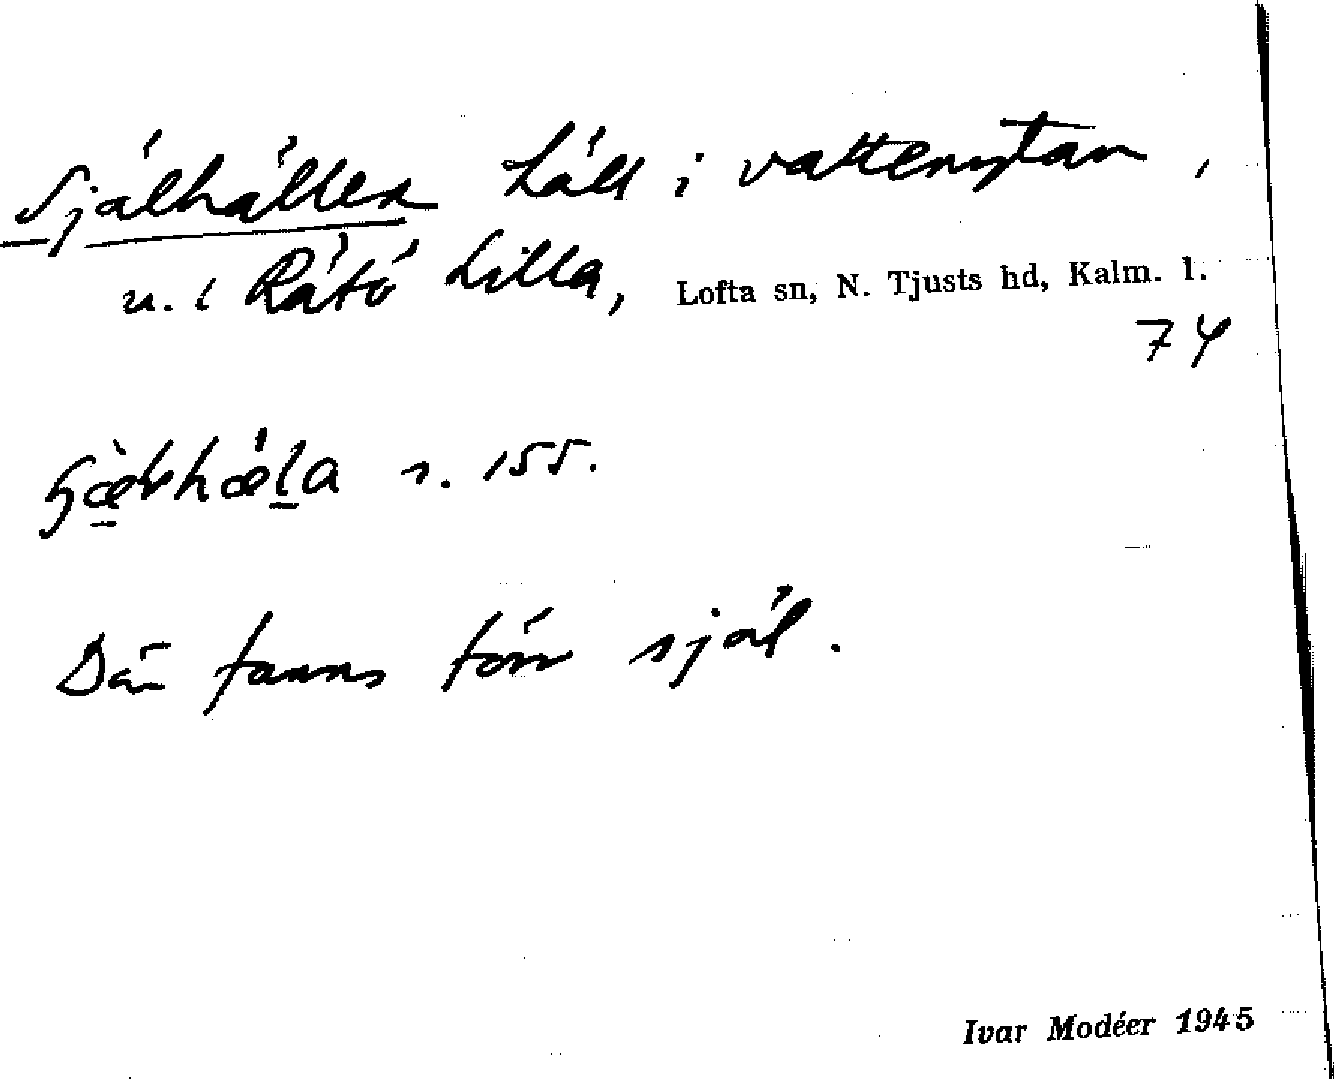 Själhällen häll i vattenytan,
u. i Rätö Lilla, Lofta sn, N. Tjusts hd, Kalm. l.
74
s. 155.
Där fanns förr själ.
Ivar Modéer 1945